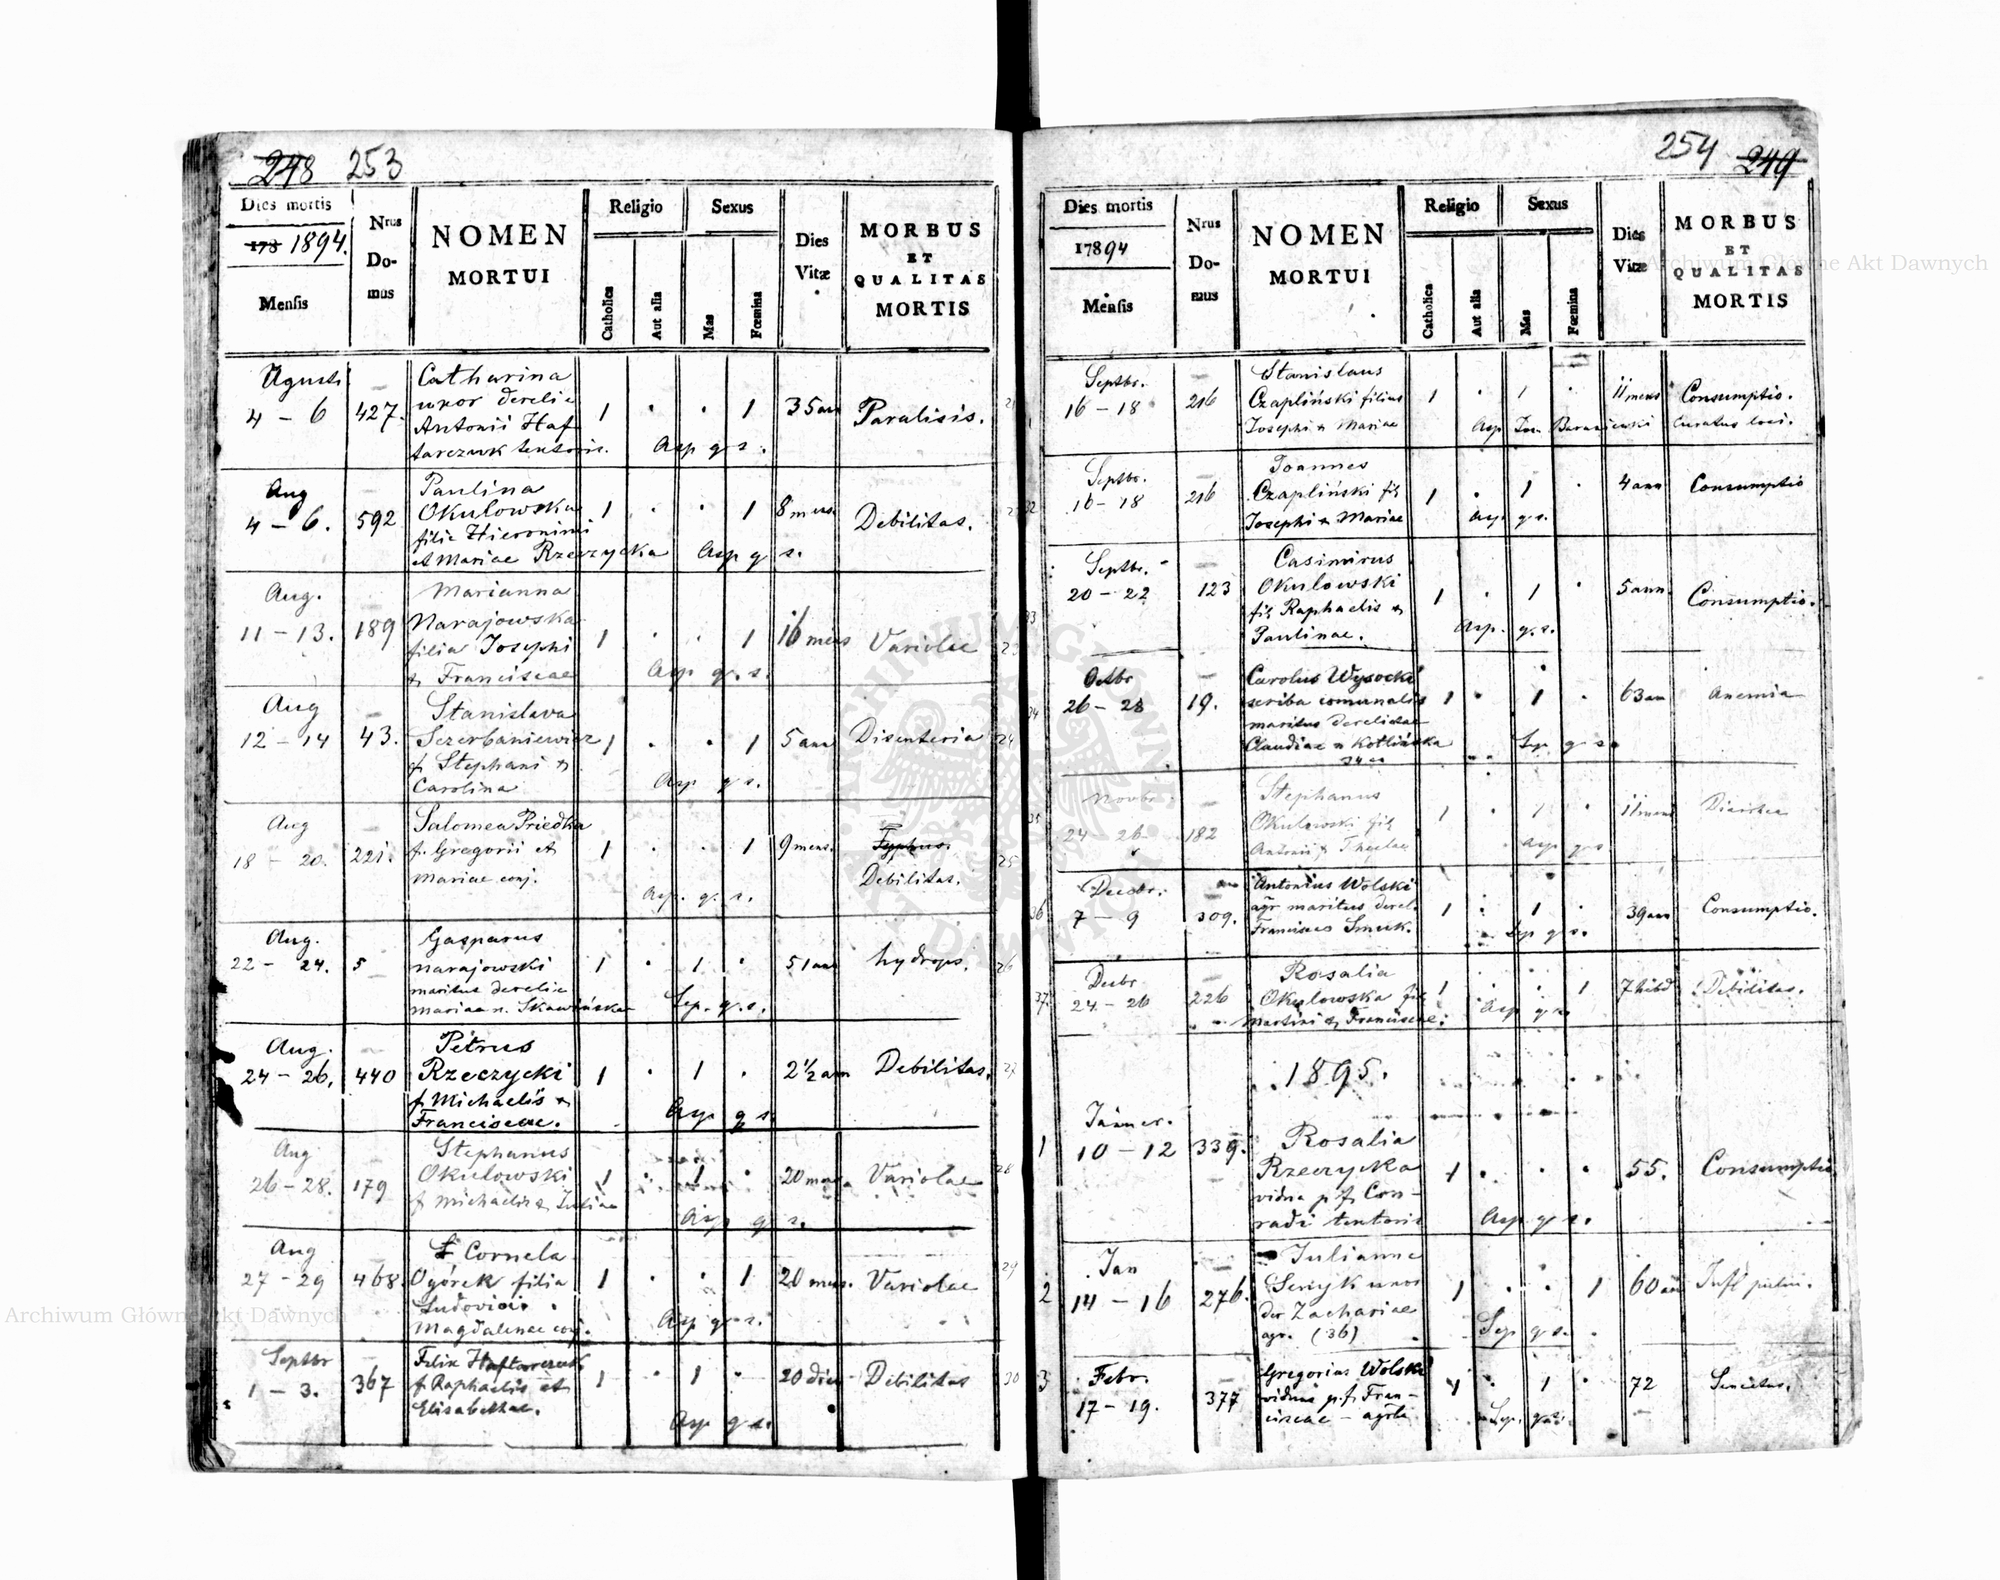 248 253
Dies mortis
173 1894.
Mensis
Nrus
Do-
mus
NOMEN
MORTUI
Religio
Catholica
Aut alia
Sexus
Mas
Fœmina
Dies
Vitæ
MORBUS
ET
QUALITAS
MORTIS
Augusti
4 - 6 427.
Catharina
uxor derelic
Antonii Haf
tarczuk textoris.
1 . . 1 35 ann Paralisis. 21
Asp g s.
Aug
4 - 6. 592
Paulina
Okulowska
filia Hieronimi
et Mariae Rzeczycka
1 . . 1 8 mens Debilitas. 22
Asp g s.
Aug.
11 - 13. 189
Marianna
Narajowska
filia Josephi
& Franciscae
1 . . 1 16 mens Variolae 23
Asp g. s.
Aug
12 - 14 43.
Stanislava
Szerbaniewicz
f. Stephani &
Carolina
1 . . 1 5 ann Disenteria 24
Asp g s.
Aug
18 - 20. 221.
Salomea Priedka
f. Gregorii et
Mariae conj.
1 . . 1 9 mens. Typhus.
Debilitas. 25
Asp. g. s.
Aug.
22 - 24. 5
Gasparus
Narajowski
maritus derelic
Mariae n. Skawińska
1 . 1 . 51 ann hydrops. 26
Sep. g. s.
Aug.
24 - 26. 440
Petrus
Rzeczycki
f. Michaelis &
Franciscae.
1 . 1 . 2 1/2 ann Debilitas. 27
Asp g s.
Aug
26 - 28. 179
Stephanus
Okulowski
f. Michaelis & Juliae
1 . 1 . 20 mens Variolae 28
Asp g s.
Aug
27 - 29 468.
Cornela
Ogórek filia
Ludovici
Magdalenae conj.
1 . . 1 20 mens. Variolae 29
Asp g. s.
Septbr
1 - 3. 367
Felix Haftarczuk
f. Raphaelis et
Elisabethae.
1 . 1 . 20 dies Debilitas 30
Asp g s.
254 249
Dies mortis
17894
Mensis
Nrus
Do-
mus
NOMEN
MORTUI
Religio
Catholica
Aut alia
Sexus
Mas
Fœmina
Dies
Vitæ
MORBUS
ET
QUALITAS
MORTIS
Septbr.
16 - 18 216
Stanislaus
Czapliński filius
Josephi & Mariae
1 . 1 . 11 mens Consumptio.
Asp Baraniewski Curatus loci.
Septbr.
16 - 18 216
Joannes
Czapliński fil
Josephi & Mariae
32 1 . 1 . 4 ann Consumptio
Asp. g s.
Septbr.
20 - 22 123
Casimirus
Okulowski
fil Raphaelis &
Paulinae.
33 1 . 1 . 5 ann. Consumptio.
Asp. g. s.
Octbr
26 - 28 19.
Carolus Wysocki
scriba comunalis
maritus derelictae
Claudiae n Kotlińska
34 1 . 1 . 63 ann Anemia
Sep g s.
Novbr
24 - 26 182
Stephanus
Okulowski fil
Antonii & Theclae
35 1 . 1 . 11 mens
Asp g s
Decbr.
7 - 9 309.
Antonius Wolski
agr maritus derel.
36 1 . 1 . 39 ann Consumptio.
Sep g s.
Decbr
24 - 26 226
Rosalia
Okulowska fil
Martini & Franciscae.
37 1 . . 1 7 hebd Debilitas.
Asp g s
1895.
Jänner.
1 10 - 12 339.
Rosalia
Rzeczycka
vidua p. f. Con-
radi textoris
1 . . . 55. Consumptio
Asp g s.
Jan
2 14 - 16 276.
Julianna
der Zachariae
agr. (36)
1 . . 1 60 ann
Sep g s.
Febr.
3 17 - 19. 377
Gregorius Wolski
viduus p. f. Fran-
ciscae - agrla
1 . 1 . 72
Sep. g. s.
Archiwum Główne Akt Dawnych
Archiwum Główne Akt Dawnych
ARCHIWUM GŁÓWNE AKT DAWNYCH